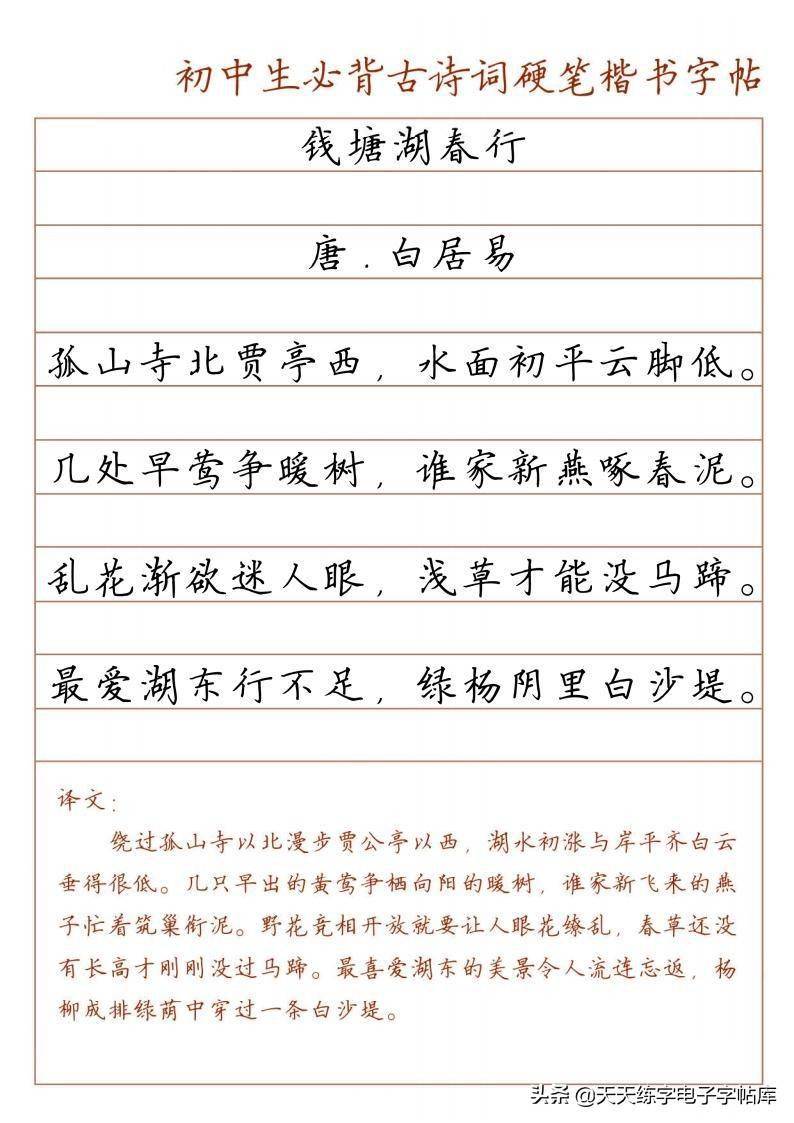 初中生必背古诗词硬笔楷书字帖
钱塘湖春行
唐.白居易
孤山寺北贾亭西，水面初平云脚低。
几处早莺争暖树，谁家新燕啄春泥。
乱花渐欲迷人眼，浅草才能没马蹄。
最爱湖东行不足，绿杨阴里白沙堤。
译文：
绕过孤山寺以北漫步贾公亭以西，湖水初涨与岸平齐白云
垂得很低。几只早出的黄莺争栖向阳的暖树，谁家新飞来的燕
子忙着筑巢衔泥。野花竞相开放就要让人眼花缭乱，春草还没
有长高才刚刚没过马蹄。最喜爱湖东的美景令人流连忘返，杨
柳成排绿荫中穿过一条白沙堤。
头条 @天天练字电子字帖库